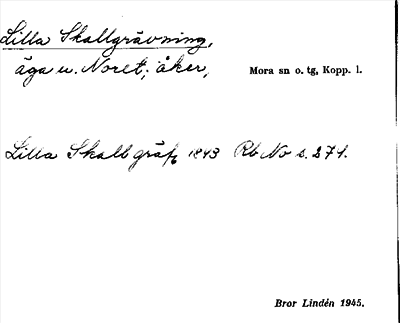 Lilla Skallgrävning,
äga u. Noret; åker,
Mora sn o. tg, Kopp. l.
Lilla Skallgräf 1843 Rb No s. 271.
Bror Lindén 1945.